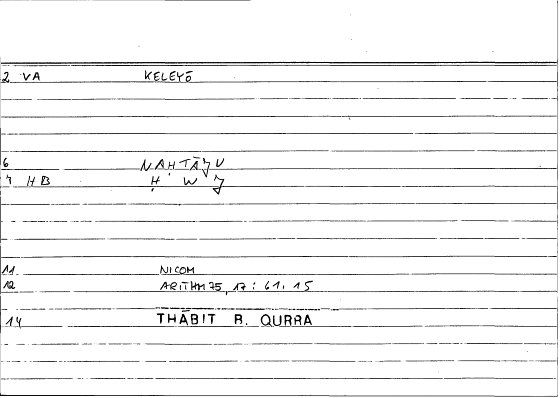 2 VA KELEYŌ
6 NAḤTĀǦU
7 HB Ḥ W Ǧ
11 NICOM
12 ARITHM 75, 17 : 61, 15
14 THĀBIT B. QURRA